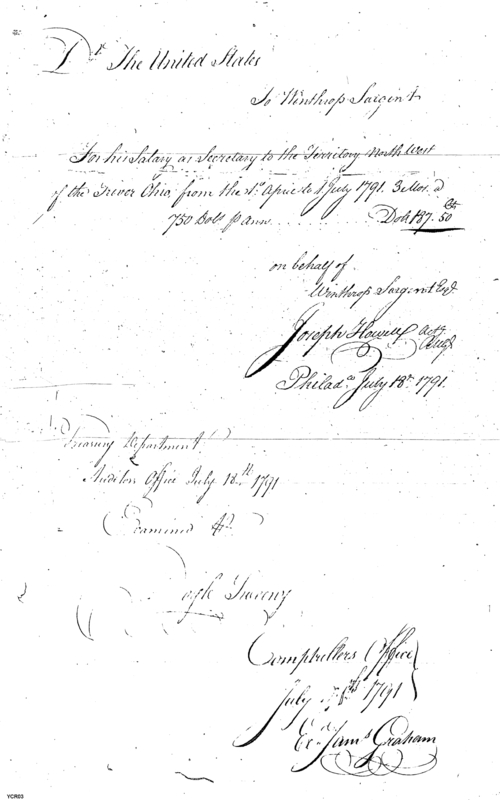 Dr. The United States
To Winthrop Sargent
For his Salary as Secretary to the Territory North West
of the River Ohio, from the 1st. April to 1 July 1791. 3 Mos. @
750 Dolls p Ann. . . . . . . . Dolls 187. 50 Cts
on behalf of
Winthrop Sargent Esqr.
Joseph Howell actg
Philada. July 18th. 1791.
Treasury Department
Auditors Office July 18th. 1791
Examined
Comptrollers Office
July 1791
Ex. Jams. Graham
YCR03